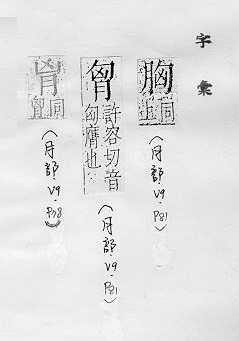 字彙
胸 同上
(月部.V9.P81)
匈 許容切音匈膺也
(月部.V9.P81)
胷 同
(月部.V9.P38)